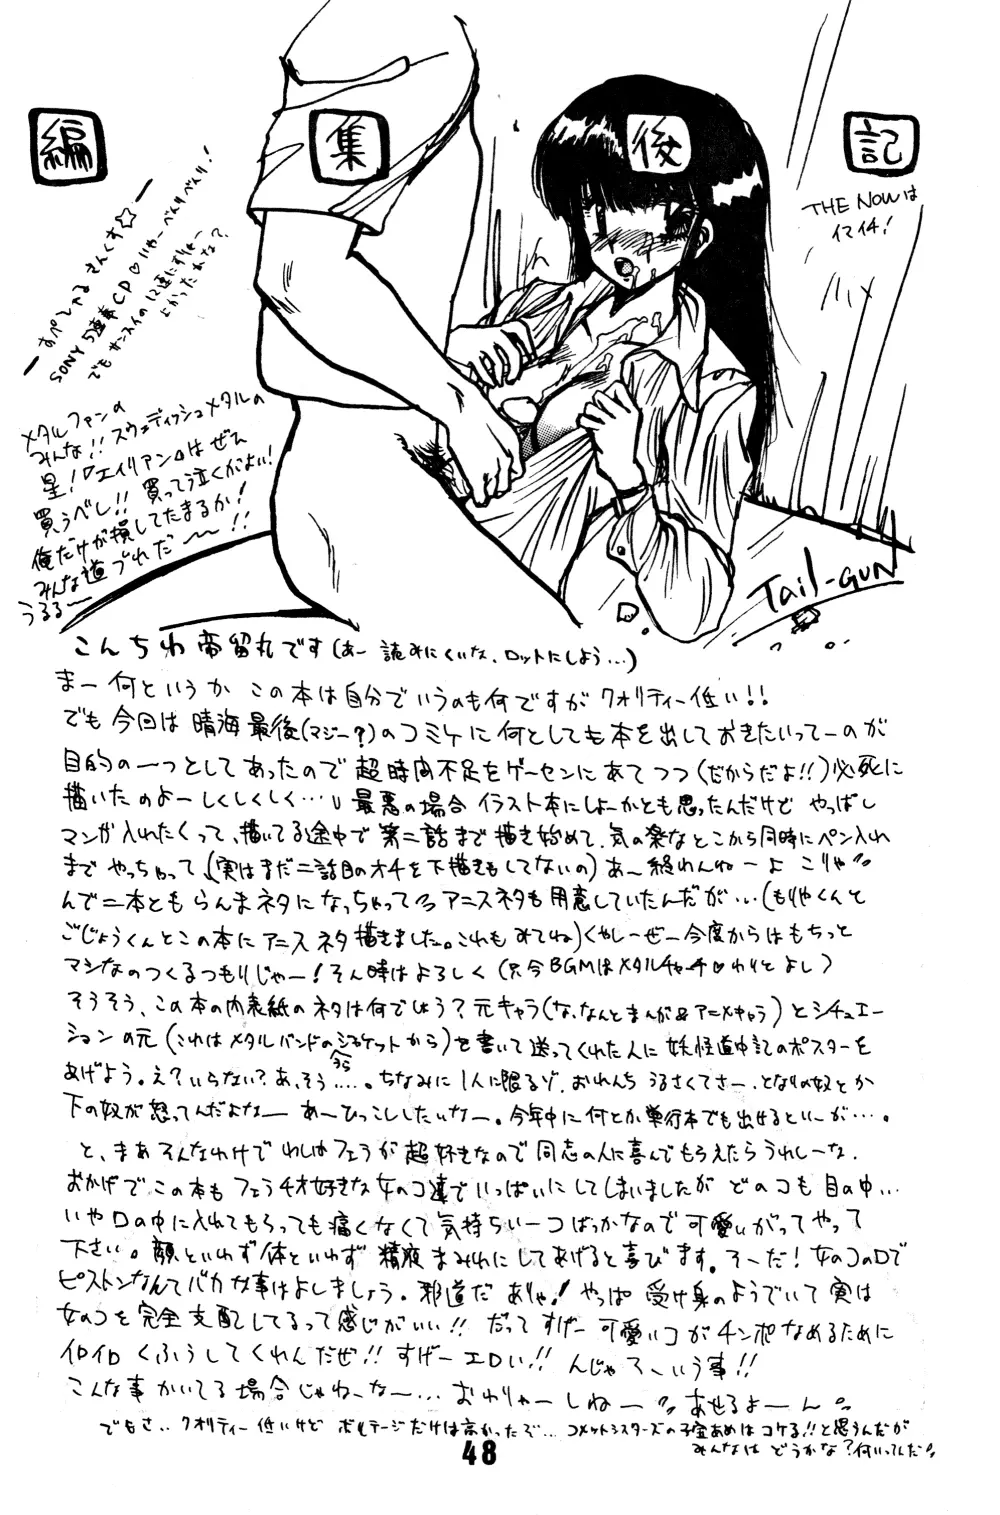 編 集 後 記
THE NOWは
イマイチ!
すぺしゃる さんくす☆
SONY 5連奏CD♡いやーべんりべんり!
でも サンスイの12連にすりゃ〜
よかったかな?
メタルファンの
みんな!! スウェディッシュメタルの
星!『エイリアン』はぜひ
買うべし!! 買って泣くがよい!
俺だけが損してたまるか!
みんな道づれだ〜〜!!
うるる〜
Tail-GUN
こんちわ 帝留丸です(あー 読みにくいな、ロットにしよう…)
まー何というか この本は自分でいうのも何ですが クオリティー低い!!
でも今回は 晴海最後(マジー?)のコミケに何としても本を出しておきたいってーのが
目的の一つとしてあったので 超時間不足をゲーセンにあてつつ(だからだよ!!)必死に
描いたのよーしくしくしく… 最悪の場合 イラスト本にしよーかとも思ったんだけど やっぱし
マンガ入れたくって、描いてる途中で第二話まで描き始めて、気の楽なとこから同時にペン入れ
まで やっちゃって、(実はまだ二話目のオチを下描きもしてないの)あー終わんねーよ こりゃ
んで二本とも らんまネタになっちゃって アニスネタも用意していたんだが…(もりやくんと
ごじょうくんとこの本にアニスネタ描きました。これもみてね)くやしーぜー今度からはもちっと
マシなのつくるつもりじゃー!そん時はよろしく(只今BGMはメタルチャーチ♡わりとよし)
そうそう、この本の内表紙のネタは何でしょう?元キャラ(な、なんとまんが&アニメキャラ)とシチュエー
ションの元(これはメタルバンドのジャケットから)を書いて送ってくれた人に 妖怪道中記のポスターを
あげよう。え?いらない?あ、そう…。ちなみに1人に限るゾ。おれんち うるさくてさー、となりの奴とか
下の奴が怒ってんだよなー あーひっこししたいなー。今年中に何とか単行本でも出せるといーが…。
と、まあそんなわけで わしはフェラが超好きなので同志の人に喜んでもらえたらうれしーな。
おかげでこの本も フェラチオ好きな女のコ達でいっぱいにしてしまいましたが どのコも目の中…
いや口の中に入れてもらっても痛くなくて気持ちいーコばっかなので可愛いがってやって
下さい。顔といわず体といわず 精液まみれにしてあげると喜びます。そーだ!女のコの口で
ピストンなんてバカな事はよしましょう。邪道だ ありゃ! やっぱ 受け身のようでいて実は
女のコを完全支配してるって感じがいい!! だってすげー可愛いコがチンポなめるために
イロイロくふうしてくれんだぜ!! すげーエロい!! んじゃ そーいう事!!
こんな事かいてる場合じゃねーなー… おわりゃーしねー あせるよーん
でもさ‥クオリティー低いけど ボルテージだけは高かったぞ… コメットシスターズの子宝あめはコケる!!と思うんだが
みんなは どうかな?何いってんだ
48